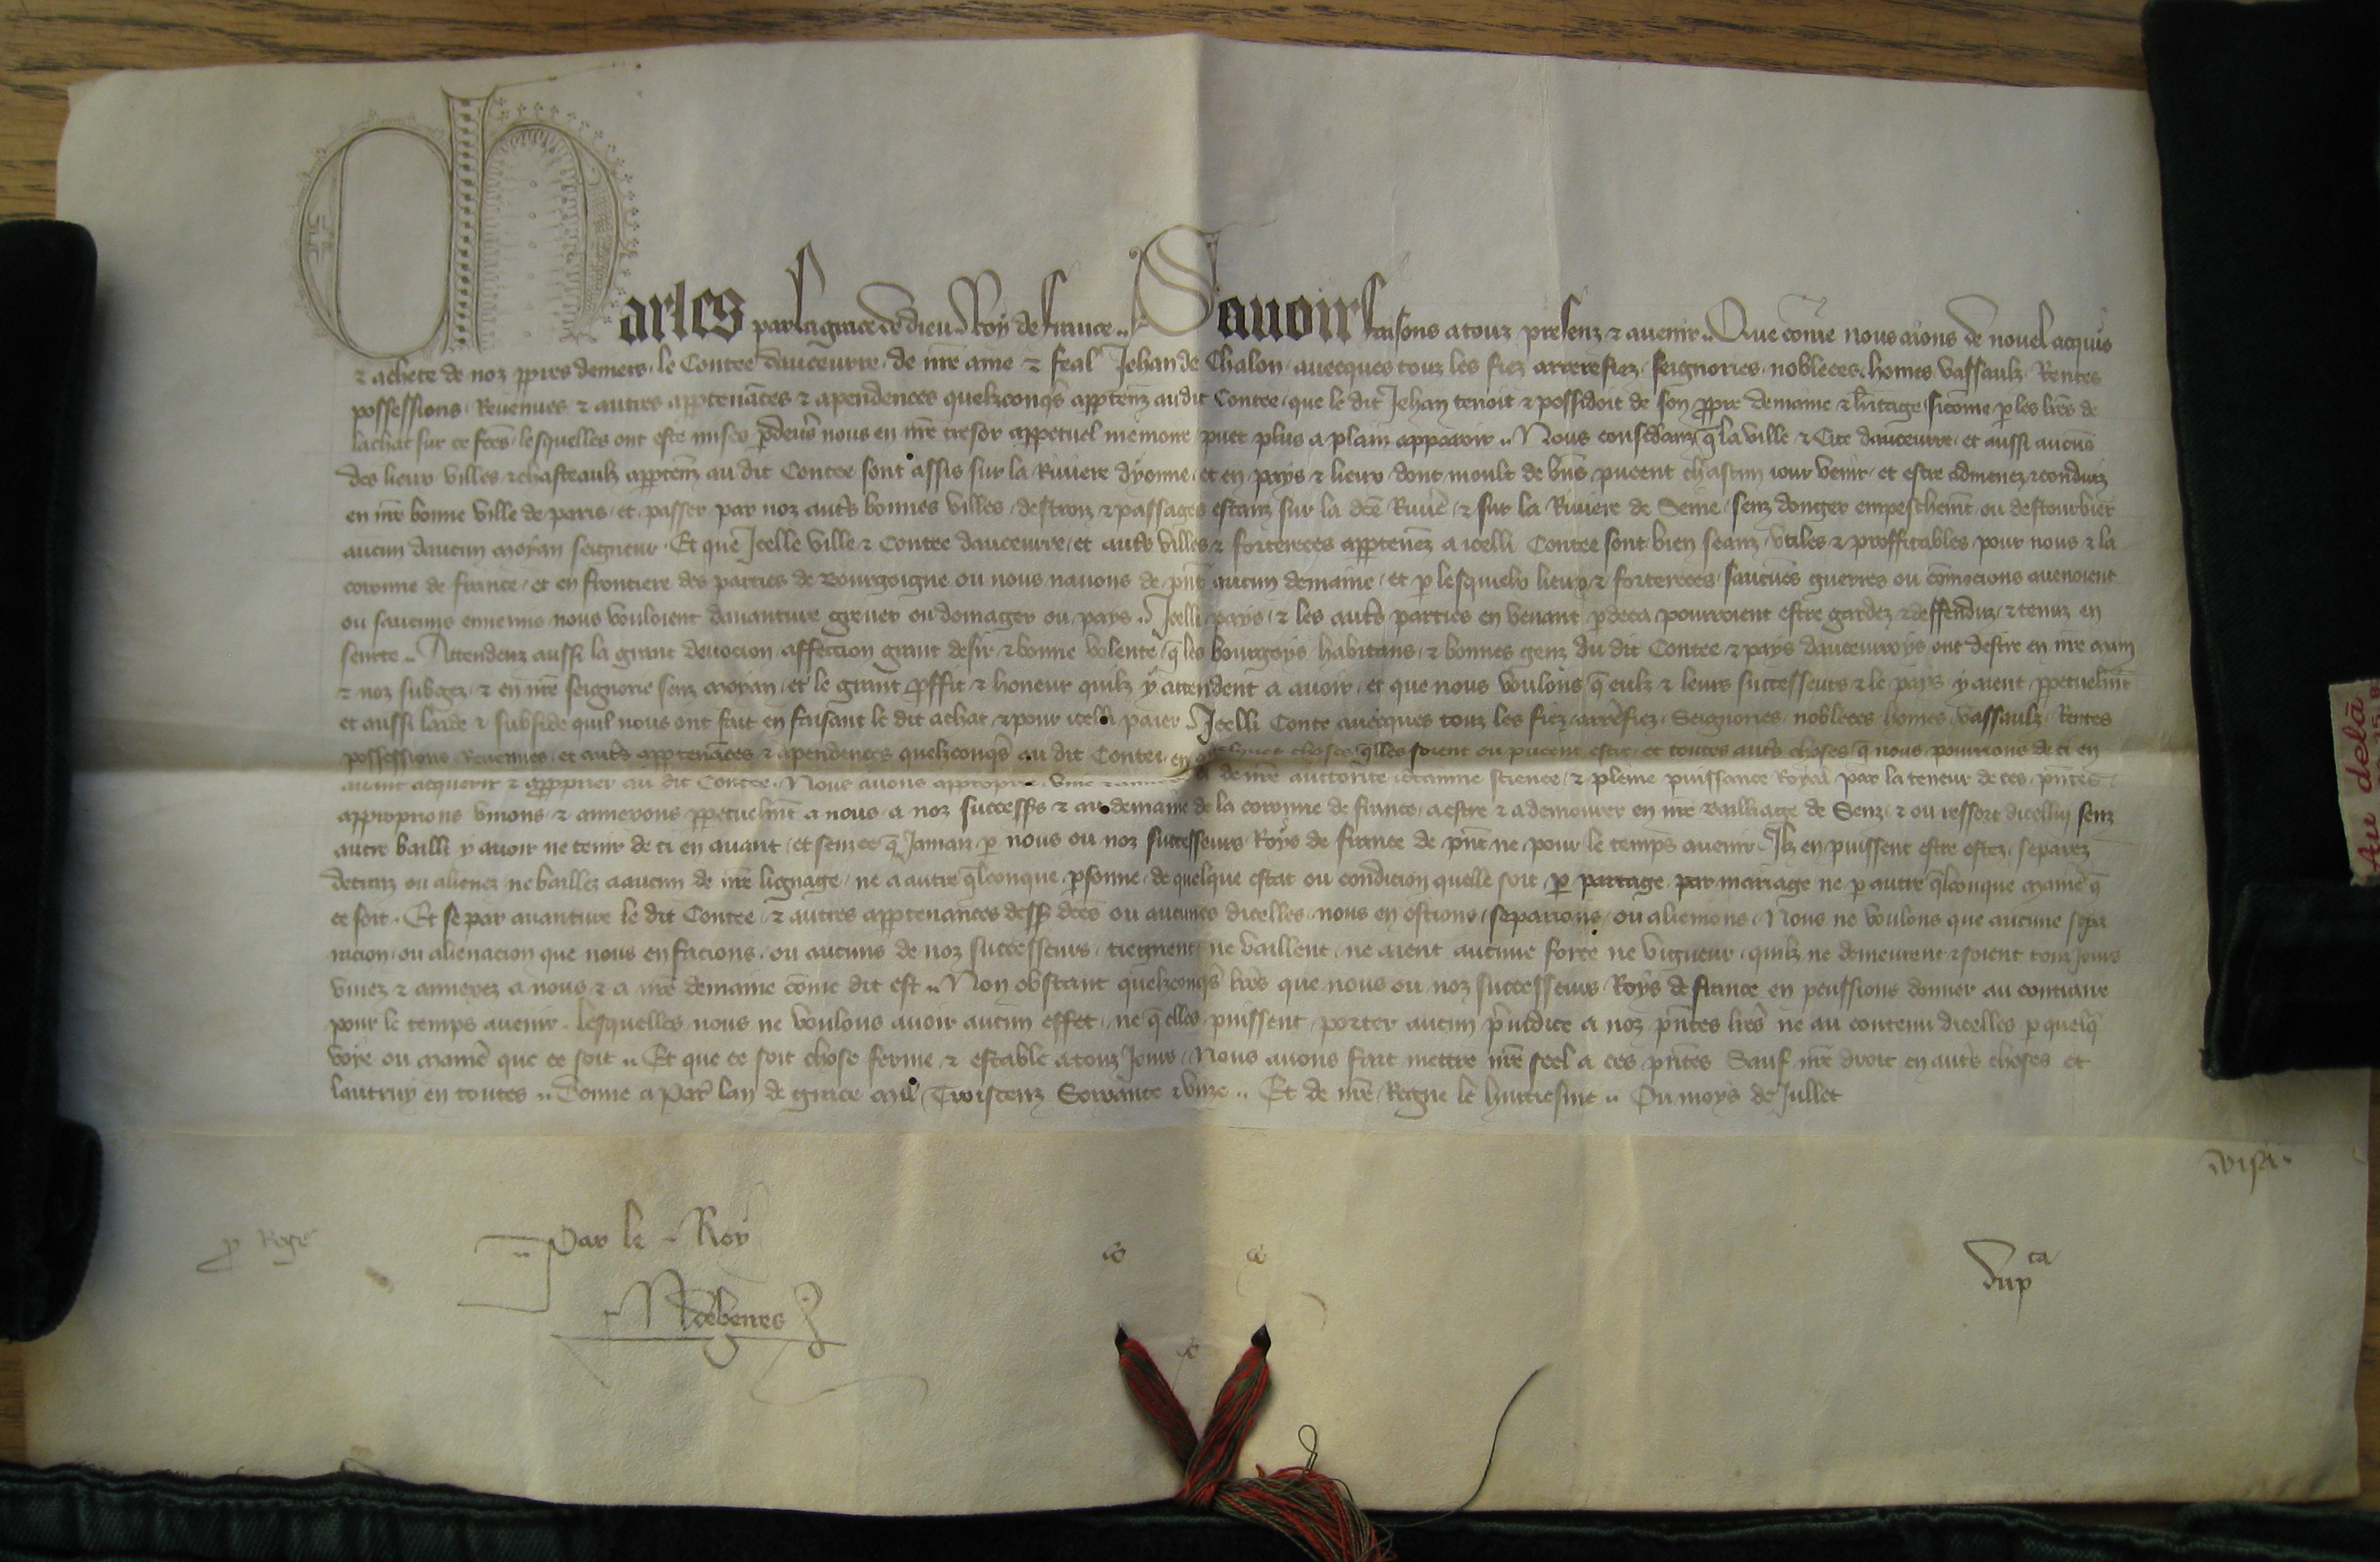 Charles par la grace de dieu Roy de france .. Savoir faisons a touz presenz & avenir .. Que come nous aions de nouvel acquis
& achete de noz ppres deniers, le Contee dauceurre, de nre ame & feal Jehan de Chalon, avecques touz les fiez arrerefiez, seignories, nobleces, homes, vassaulx, Rentes
possessions, Revenues & autres apptenaces & apendences quelzconqs apptenz au dit Contee, que le dit Jehan tenoit & possidoit de son ppre demaine & heritage, sicome p les lres de
lachat sur ce fces, lesquelles ont este mises pdevs nous en nre tresor a ppetuel memoire puet plus a plain apparoir .. Nous considanz q la ville & Cite dauceurre, et aussi aucus
des lieux villes & chasteaulx apptenz au dit Contee sont assis sur la Riviere dyonne, et en pays & lieux, dont moult de bns pueent chascun jour venir, et estre admenez & conduiz
en nre bonne ville de paris, et passer par noz auts bonnes villes, destroiz & passages estanz sur la dce Rivie, & sur la Riviere de Seine, senz dongier empeschemt, ou destourbier
aucun daucun moyan seigneur. Et que Icelle ville & Contee dauceurre, et auts villes & forteresces apptenez a icelli Contee sont bien seanz, utiles & proffitables, pour nous & la
coronne de france, et en frontiere des parties de Bourgoigne ou nous navons de pnt aucun demaine, et p lesquielx lieux & forteresces, saucues guerres ou comocions avenoient
ou saucuns ennemis nous vouloient davanture grever ou domager ou pays .. Icelli pays, & les auts parties en venant pdeca pourroient estre gardez & deffenduz, & tenuz en
seurte .. Attendenz aussi la grant devocion affeccion grant desir, & bonne volente, q les bourgoys habitans, & bonnes genz du dit Contee & pays daucerroys ont destre en nre main
& noz subgez, & en nre seignorie senz moyan, et le grant pffit & honeur quilz y attendent a avoir, et que nous voulons q eulx & leurs successeurs & le pays, y aient, ppetuelmt
et aussi laide & subside quil nous ont fait en faisant le dit achat, & pour icelli paier .. Icelli Conte avecques touz les fiez, arrefiez, Seignories, nobleces, homes, vassaulx, Rentes
possessions, Revenues, et auts apptenaces & apendences quelzconqs au dit Contee, en quelzconqs choses qlles soient ou pueent estre, et toutes auts choses q nous pourrions de ci en
avant acquerir & appprier au dit Contee. Nous avons approprie, unie de nre auctorite ctainne science, & pleine puissance Royal par la teneur de ces pntes
approprions unions & annexons ppetuelmt a nous a noz successrs & au demaine de la coronne de france, a estre & a demourer en nre Bailliage de Senz, & ou ressort dicelluy senz
autre bailli y avoir ne tenir de ci en avant, et senz ce q Jamaiz p nous ou noz successeurs Roys de france de pnt ne pour le temps avenir Ilz en puissent estre ostez, separez
desunz ou alienez ne baillez a aucun de nre lignage, ne a autre qlconque psonne, de quelque estat ou condicion quelle soit, p partage, par mariage ne p autre qlconque manie q
ce soit. Et se par avanture le dit Contee, & autres apptenances dess dces ou aucunes dicelles, nous en ostions, separions, ou alienions, Nous ne voulons que aucune sepa
racion, ou alienacion que nous en facions, ou aucuns de noz successeurs, tiegnent, ne vaillent, ne aient aucune force ne vigueur, quilz ne demeurent & soient touz Jours
uniez & annexez a nous & a nre demaine come dit est .. Non obstant quelzconqs lres que nous ou noz successeurs Roys de france en peussions donner au contraire
pour le temps avenir. Lesquelles nous ne voulons avoir aucun effet, ne q elles puissent porter aucun piudice a noz pntes lres ne au contenu dicelles p quelq
voye ou manie que ce soit .. Et que ce soit chose ferme, & estable a touz Jours, Nous avons fait mettre nre seel a ces pntes Sauf nre droit en auts choses et
lautruy en toutes .. Donne a Par lan de grace mil, Troiscenz Soixante & unze .. Et de nre Regne le huitiesme .. Ou moys de Juillet
visa
Par le Roy
dupca
au delà